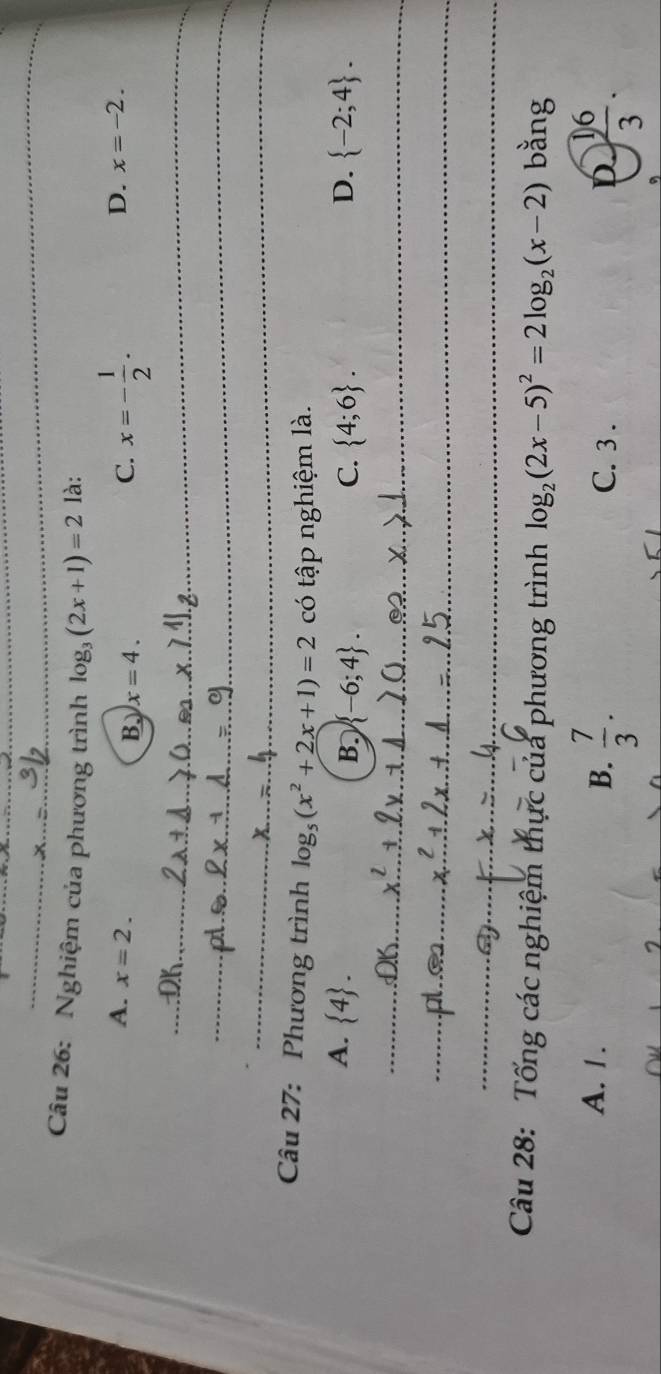 x = 3/2
Câu 26: Nghiệm của phương trình log₃(2x+1) = 2 là:
A. x = 2. B. x = 4. C. x = -1/2. D. x = -2.
ĐK 2x + 1 > 0 ⇔ x > 1/2
pt ⇔ 2x + 1 = 9
x = 4
Câu 27: Phương trình log₅(x² + 2x + 1) = 2 có tập nghiệm là.
A. {4}. B. {-6;4}. C. {4;6}. D. {-2;4}.
ĐK x² + 2x + 1 > 0 ⇔ x > 1
pt ⇔ x² + 2x + 1 = 25
⇔ [ x = 4
x = -6
Câu 28: Tổng các nghiệm thực của phương trình log₂(2x-5)² = 2log₂(x-2) bằng
A. 1. B. 7/3. C. 3. D. 16/3.